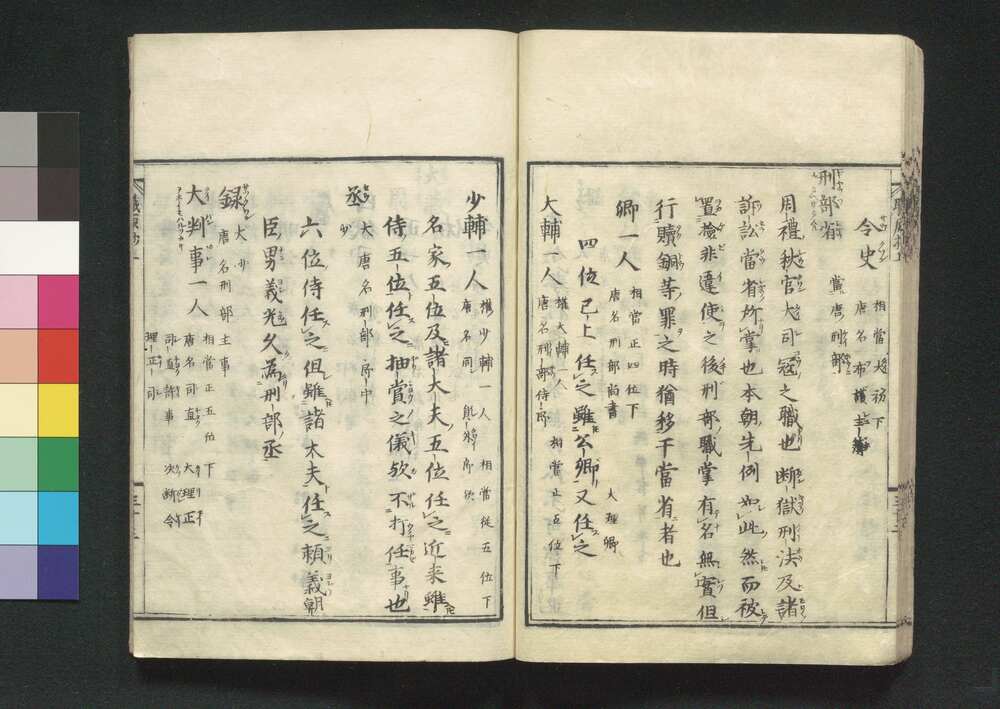 令史 相當大初下
唐名布護主簿
刑部省 當唐刑部
周禮秋官大司冠之職也断獄刑法及諸
訴訟當省所掌也本朝先例如此然而被
置撿非違使之後刑部職掌有名無實但
行贖銅等罪之時猶移干當省者也
卿一人 相當正四位下
唐名刑部尚書 大理卿
四位已上任之雖公卿又任之
大輔一人 權大輔一人 相當正五位下
唐名刑部侍郎
少輔一人 權少輔一人 相當從五位下
唐名同
名家五位及諸大夫五位任之近来雖
侍五位任之抽賞之儀欤不打任事也
丞 大少 唐名刑部郎中
六位侍任之但雖諸大夫任之頼義朝
臣男義光久為刑部丞
録 大少 唐名刑部主事
大判事一人 相當正五位下
唐名司直 大理正
司直評事 決断令
理正司